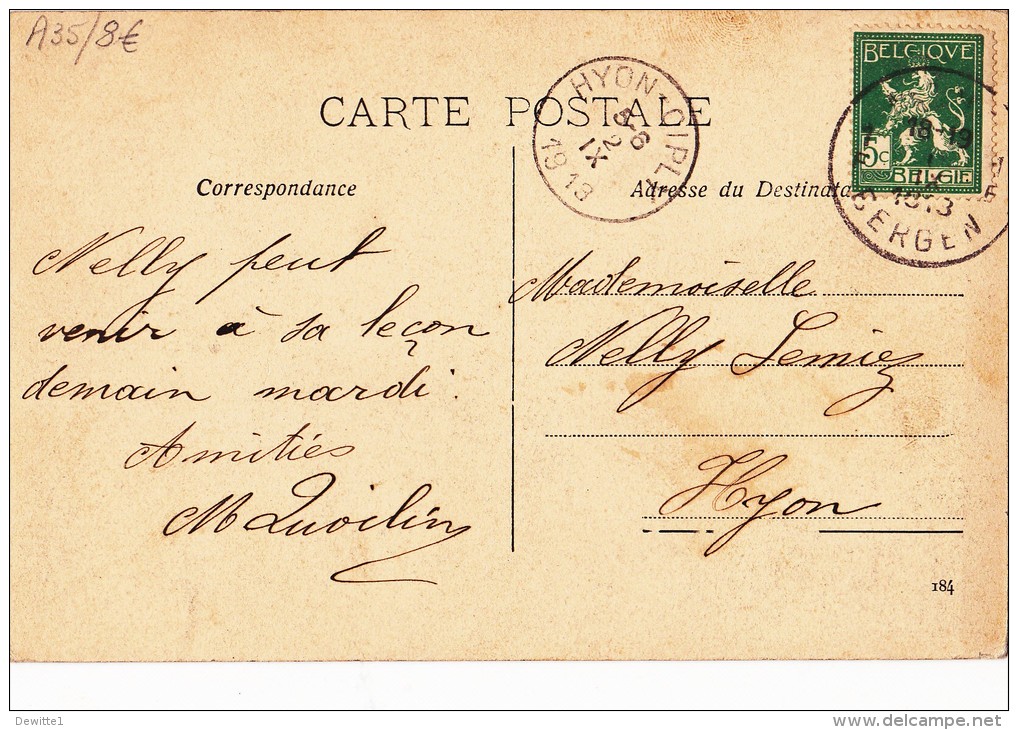 A35/8€
CARTE POSTALE
HYON-CIPLY
5-6
2
IX
1913
BELGIQVE
5c
BELGIE
18-19
1
IX
1913
BERGEN
Correspondance
Adresse du Destinata
Nelly peut
venir à sa leçon
demain mardi.
Amitiés
M Quoilin
Mademoiselle
Nelly Lemiez
Hyon
184
Dewitte1
delcampe.net